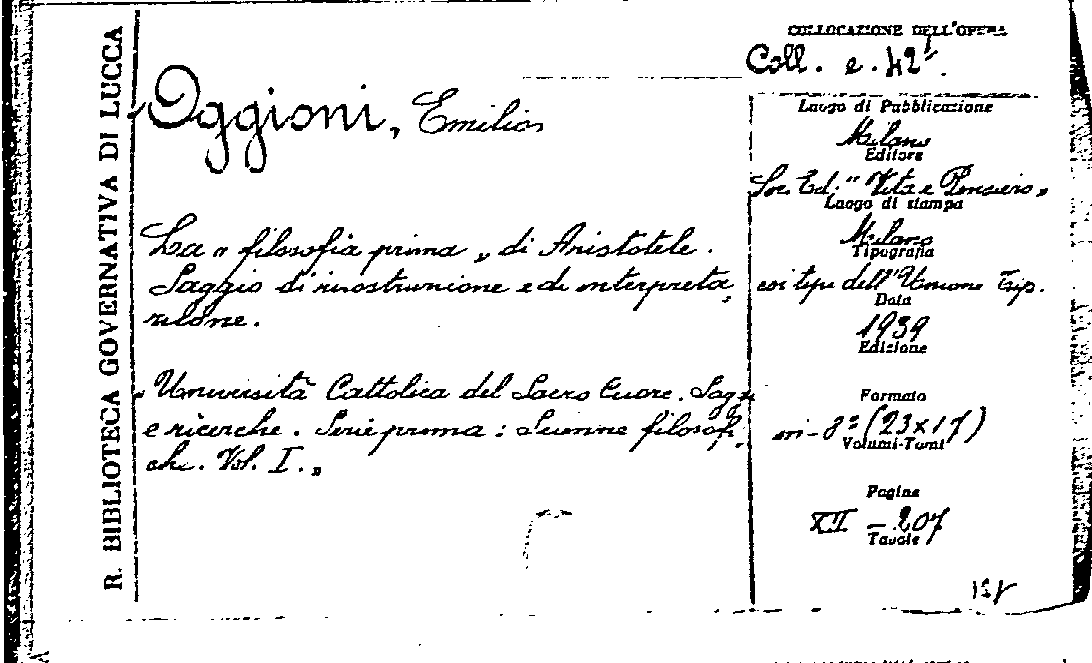 R. BIBLIOTECA GOVERNATIVA DI LUCCA
Oggioni, Emilio
La „ filosofia prima „ di Aristotele.
Saggio di ricostruzione e di interpreta-
zione.
„ Università Cattolica del Sacro Cuore. Saggi
e ricerche. Serie prima: Scienze filosofi-
che. Vol. I. „
COLLOCAZIONE DELL'OPERA
Coll. e. 42
Luogo di Pubblicazione
Milano
Editore
Soc. Ed. " Vita e Pensiero „
Luogo di stampa
Milano
Tipografia
coi tipi dell'Unione Tip.
Data
1939
Edizione
Formato
in-8° (23x17)
Volumi-Tomi
Pagine
XII - 207
Tavole